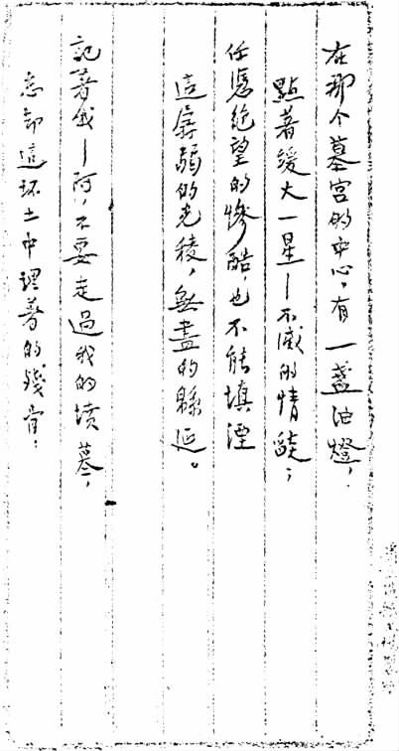 在那个墓宫的中心，有一盏油燈，
點著緩火一星—不滅的情燄；
任憑絕望的慘酷，也不能填湮
這孱弱的光稜，無盡的緜延。
記著我—阿，不要走過我的墳墓，
忘却這抔土中埋著的殘骨：